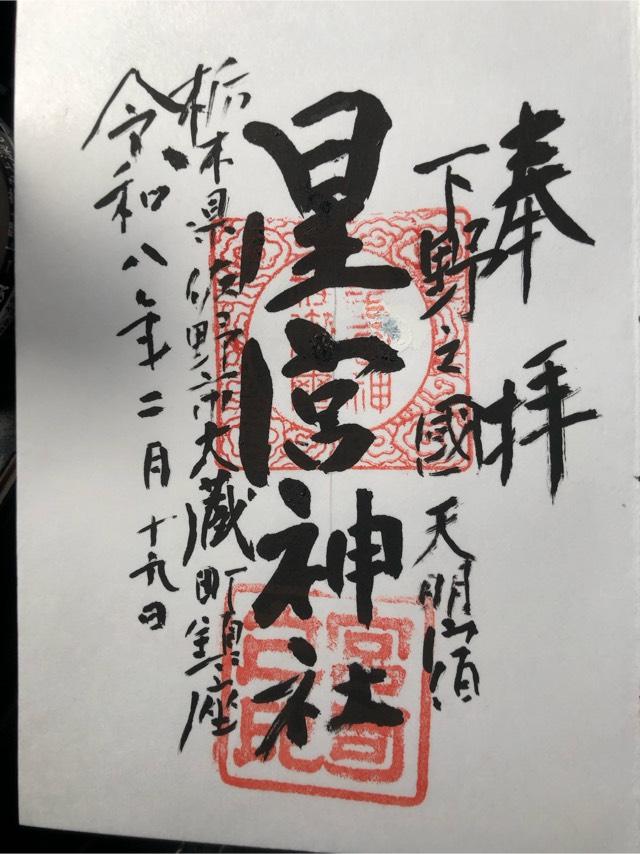 奉拝
下野之國 天明 須
星宮神社
栃木県佐野市大蔵町鎮座
令和八年二月十九日